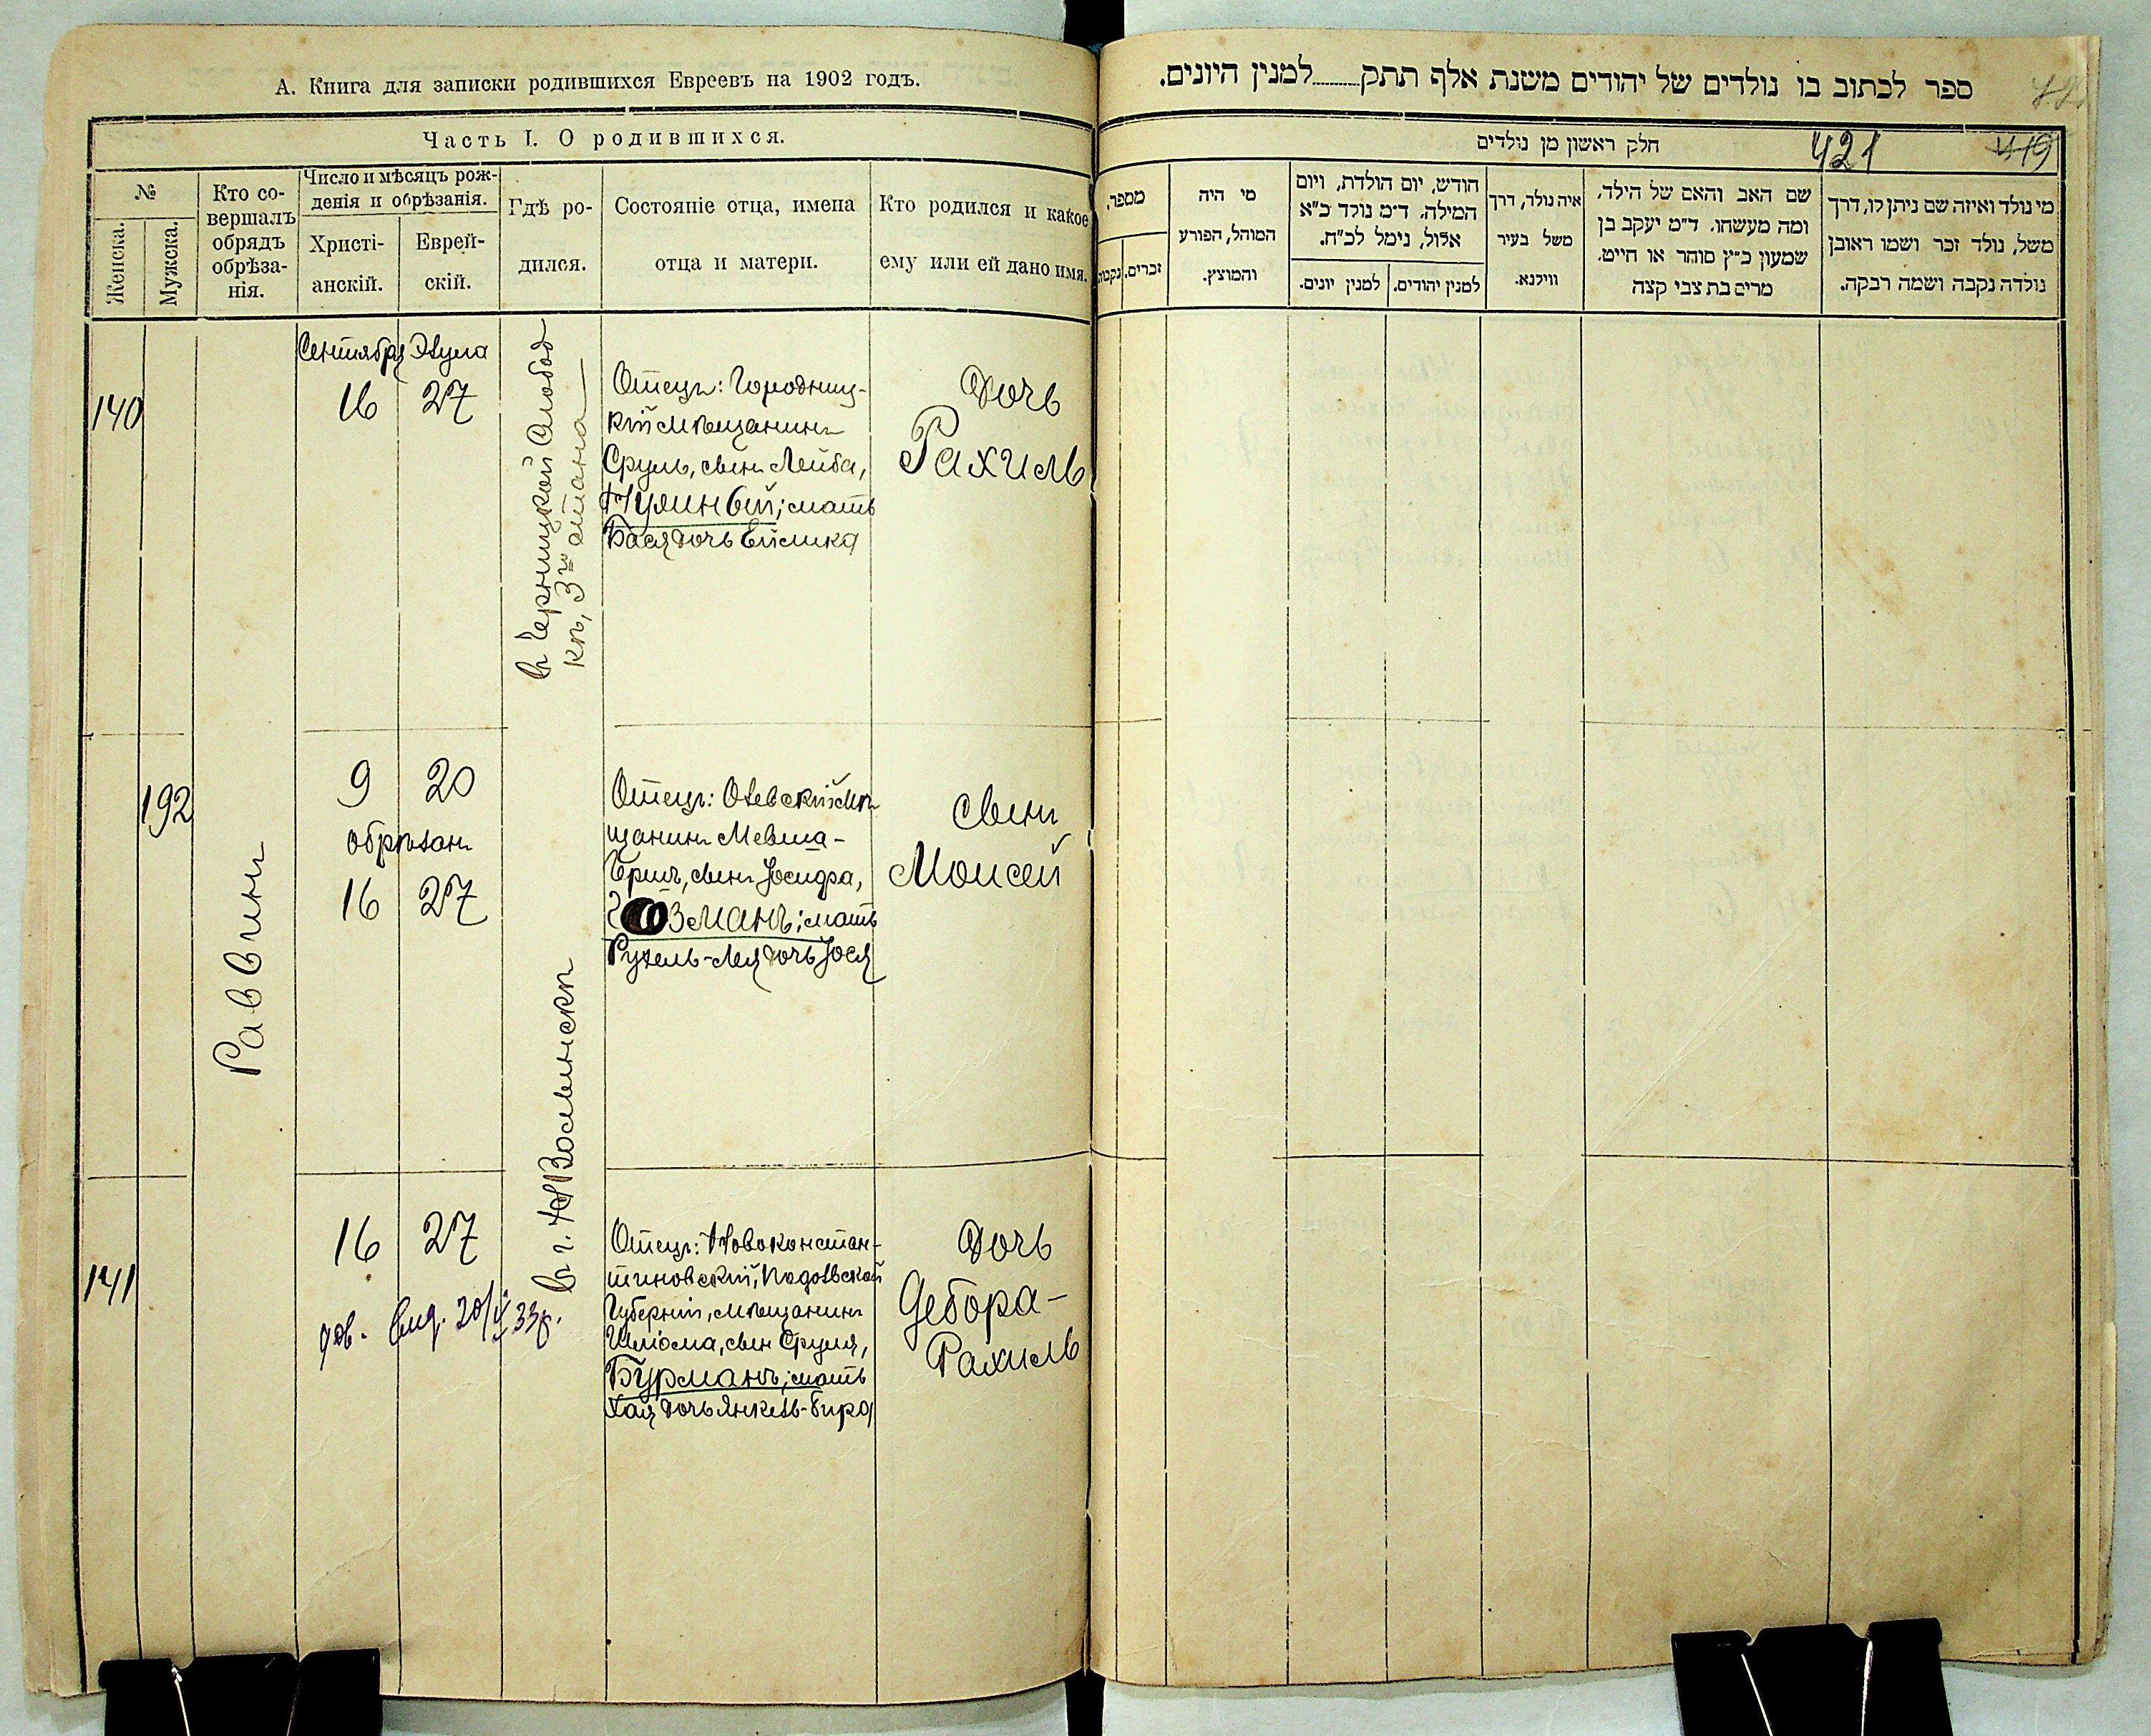 А. Книга для записки родившихся Евреевъ на 1902 годъ.
Часть I. О родившихся.
№
Женска.
Мужска.
Кто со-
вершалъ
обрядъ
обрѣза-
нія.
Число и мѣсяцъ рож-
денія и обрѣзанія.
Христі-
анскій.
Еврей-
скій.
Гдѣ ро-
дился.
Состояніе отца, имена
отца и матери.
Кто родился и какое
ему или ей дано имя.
140
Сентября Элула
16 27
въ Черницкой Слобод
кѣ, 3го стана
Отецъ: Городниц-
кій мѣщанинъ
Сруль, сынъ Лейба,
Нулиный; мать
Бася дочь Ейлика
Дочь
Рахиль
192
Раввинъ
9 20
обрѣзанъ
16 27
въ г. НВолынскѣ
Отецъ: Олевскій мѣ
щанинъ Мевша-
Бришъ, сынъ Іосифа,
зманъ; мать
Рухель-Лея дочь Іося
Сынъ
Моисей
141
16 27
20/V 33г.
Отецъ: Новоконстан-
тиновскій, Подольской
Губерніи, мѣщанинъ
Шліома, сынъ Сруля,
Бурманъ; мать
Хая дочь Янкель-Бира
Дочь
Дебора-
Рахиль
ספר לכתוב בו נולדים של יהודים משנת אלף תתק........למנין היונים.
חלק ראשון מן נולדים
421
419
מספר,
זכרים.
נקבות.
מי היה
המוהל, הפורע
והמוצץ.
חודש, יום הולדת, ויום
המילה. ד״מ נולד כ״א
אלול, נימל לכ״ח.
למנין יונים.
למנין יהודים.
איה נולד, דרך
משל בעיר
ווילנא.
שם האב והאם של הילד,
ומה מעשהו. ד״מ יעקב בן
שמעון כ״ץ סוחר או חייט.
מרים בת צבי קצה
מי נולד ואיזה שם ניתן לו, דרך
משל, נולד זכר ושמו ראובן
נולדה נקבה ושמה רבקה.